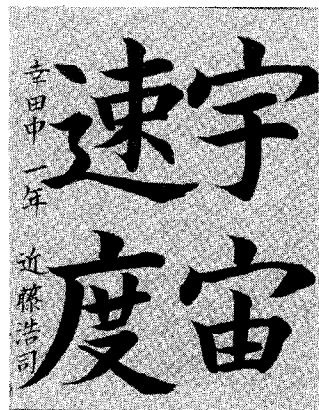 宇宙
速度
幸田中 一年 近藤浩司